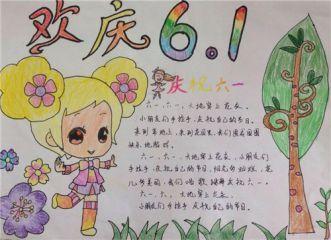 欢庆6.1
庆祝六一
六一,六一,大地穿上花衣,
小朋友们手拉手,庆祝自己的节日。
来到草地上,来到花园里,我们围着圆圈
快乐地做游戏。
六一,六一,大地穿上花衣,小朋友们
手拉手,庆祝自己的节日。
儿多美丽,我们唱歌跳舞庆祝六一。
六一,六一,大地穿上花衣,
小朋友们手拉手 庆祝自己的节日。